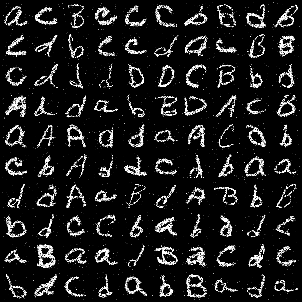 a C B e C C b B d B
C d b C C d a C B B
C d d d D D C B b d
A d d a b B D A C B
a A A a d a A C D b
C b A d d C d b a a
d d A a B d A B b B
b d C C b a b d d C
a B a a d B a C d C
b d C d a b B a d a